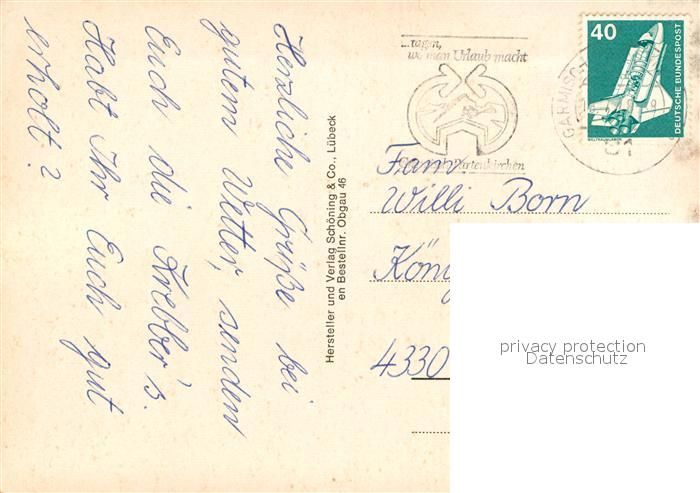 Herzliche Grüße bei
gutem Wetter, senden
Euch die Krebber's.
Habt Ihr Euch gut
erholt?
Hersteller und Verlag Schöning & Co., Lübeck
en Bestellnr. Obgau 46
...tagen,
wo man Urlaub macht
Partenkirchen
40
DEUTSCHE BUNDESPOST
WELTRAUMLABOR
Fam.
Willi Born
Kön
4330
privacy protection
Datenschutz